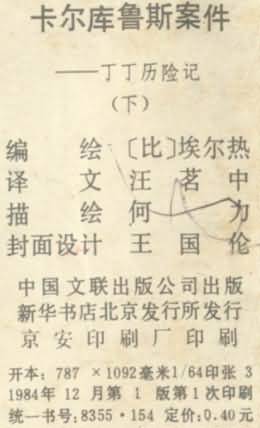 卡尔库鲁斯案件
——丁丁历险记
(下)
编 绘 〔比〕埃尔热
译 文 汪茗中
描 绘 何 力
封面设计 王国伦
中国文联出版公司出版
新华书店北京发行所发行
京安印刷厂印刷
开本:787×1092毫米1/64印张 3
1984年12月第 1 版第1次印刷
统一书号:8355·154 定价:0.40元